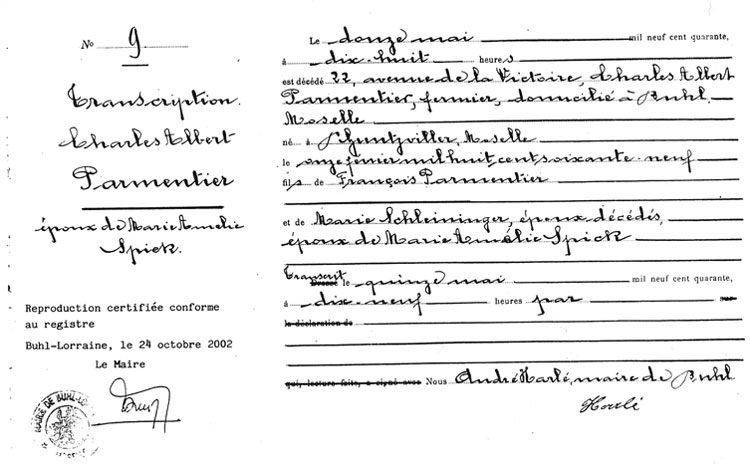 No 9
Transcription.
Charles Albert
Parmentier
époux de Marie Amelie
Spick.
Reproduction certifiée conforme
au registre
Buhl-Lorraine, le 24 octobre 2002
Le Maire
MAIRIE DE BUHL-LO
Le douze mai mil neuf cent quarante,
à dix-huit heures
est décédé 22, avenue de la Victoire, Charles Albert
Parmentier, fermier, domicilié à Buhl,
Moselle
né à Schneckenbusch, Moselle
le onze février mil huit cent soixante-neuf
fils de François Parmentier
et de Marie Schleininger, époux décédés,
époux de Marie Amélie Spick
Transcrit
Dressé le quinze mai mil neuf cent quarante,
à dix-neuf heures par sur
la déclaration de
qui, lecture faite, a signé avec Nous André Harlé, maire de Buhl
Harlé